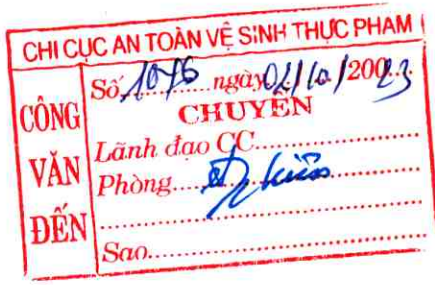 CHI CỤC AN TOÀN VỆ SINH THỰC PHẨM
CÔNG VĂN ĐẾN
Số 1076 ngày 02/10/2023
CHUYỂN
Lãnh đạo CC
Phòng
Sao